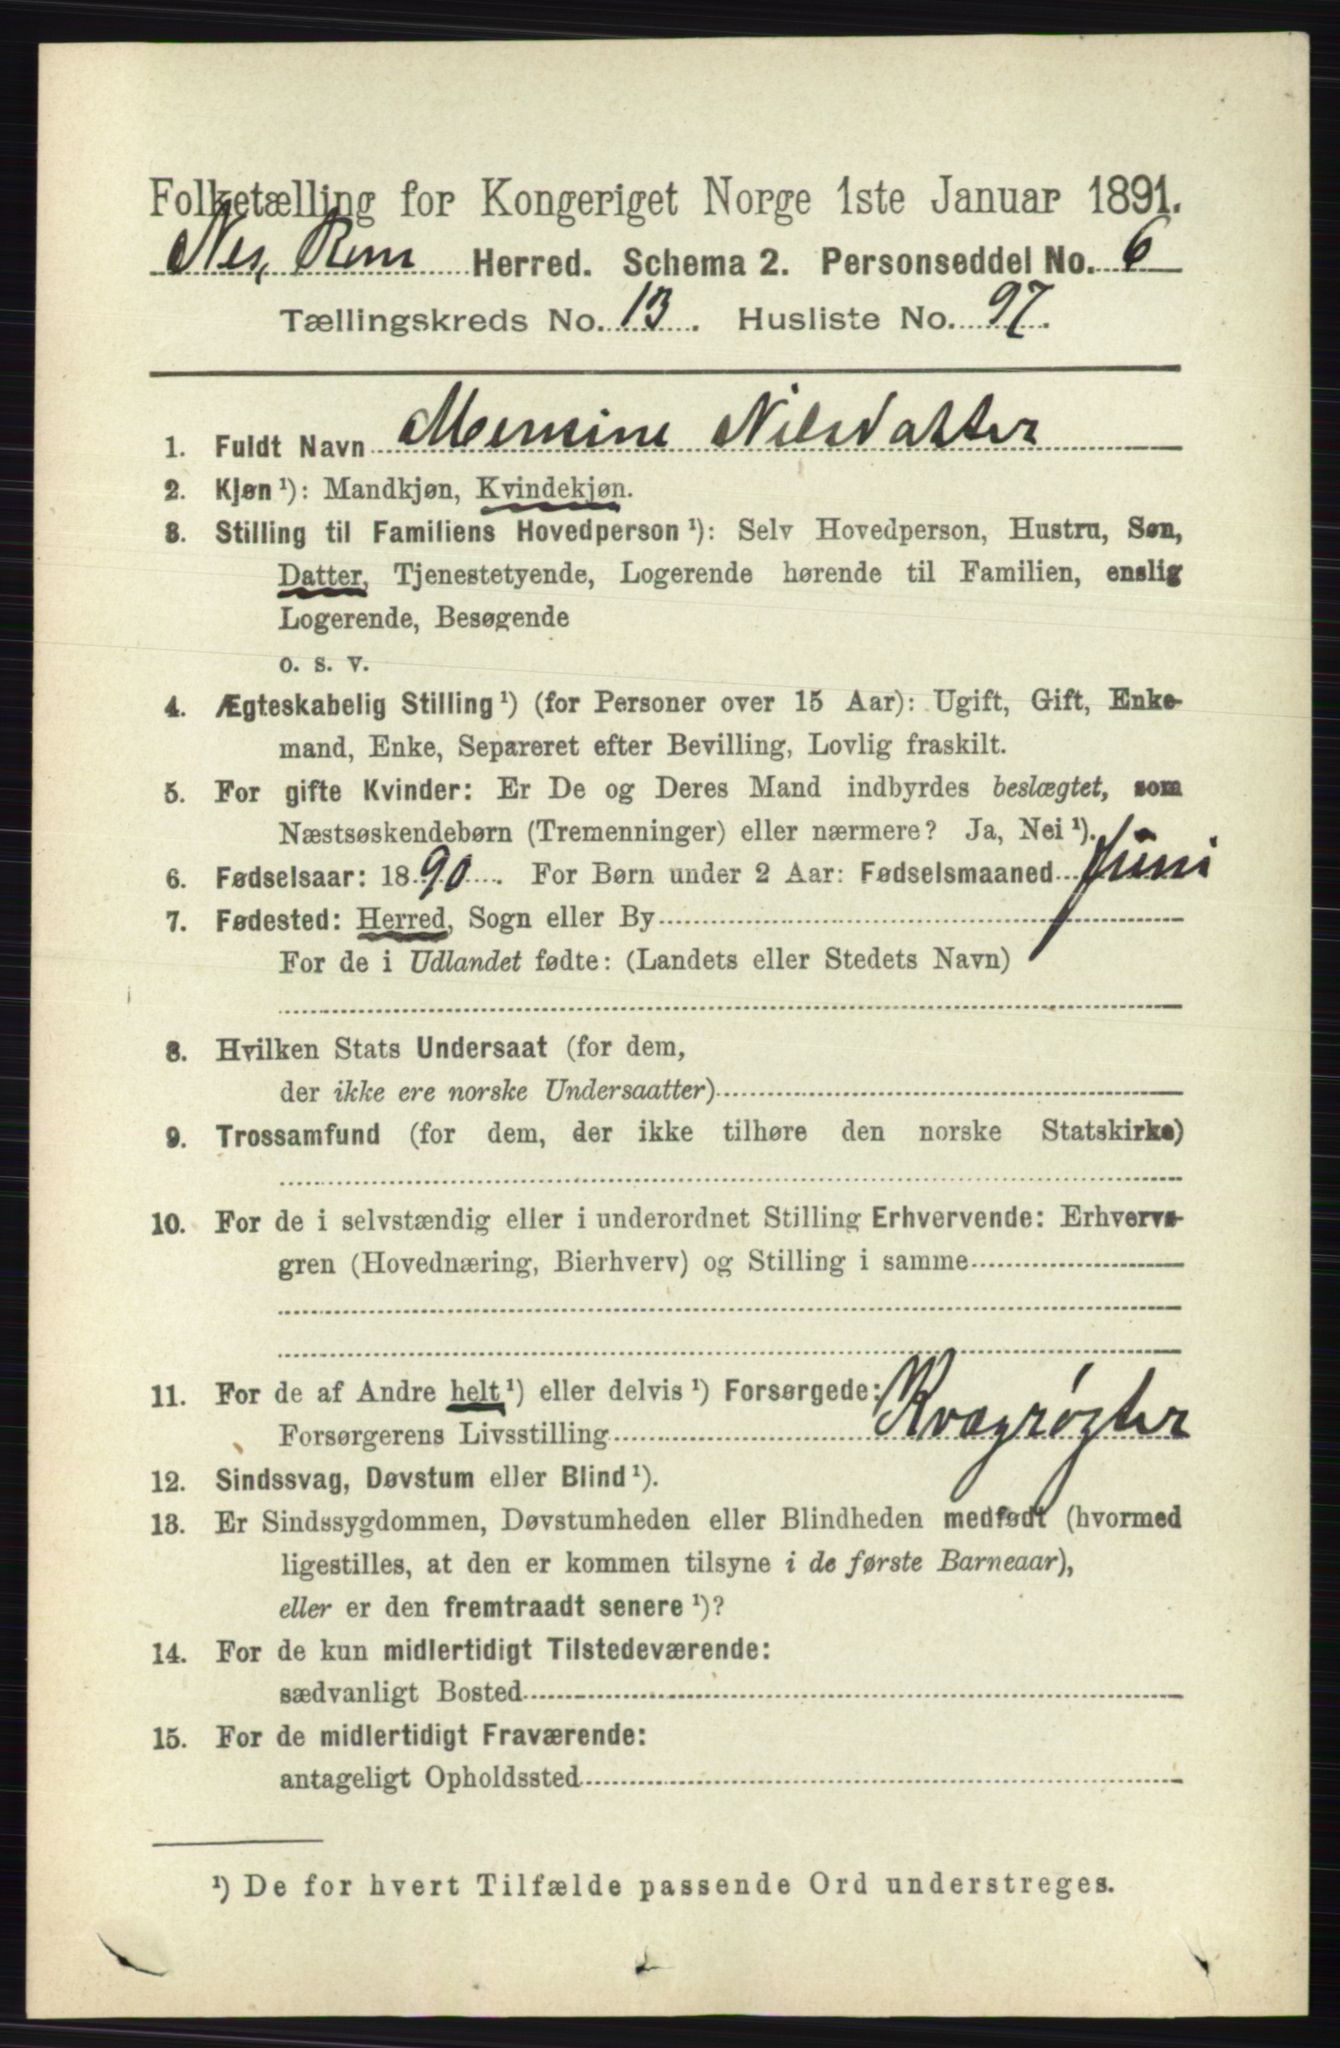 Folketælling for Kongeriget Norge 1ste Januar 1891.
Nes, Rom Herred. Schema 2. Personseddel No. 6
Tællingskreds No. 13. Husliste No. 97.
1. Fuldt Navn Mensine Nilsdatter
2. Kjøn ¹): Mandkjøn, Kvindekjøn.
3. Stilling til Familiens Hovedperson ¹): Selv Hovedperson, Hustru, Søn,
Datter, Tjenestetyende, Logerende hørende til Familien, enslig
Logerende, Besøgende
o. s. v.
4. Ægteskabelig Stilling ¹) (for Personer over 15 Aar): Ugift, Gift, Enke-
mand, Enke, Separeret efter Bevilling, Lovlig fraskilt.
5. For gifte Kvinder: Er De og Deres Mand indbyrdes beslægtet, som
Næstsøskendebørn (Tremenninger) eller nærmere? Ja, Nei ¹).
6. Fødselsaar: 1890. For Børn under 2 Aar: Fødselsmaaned Juni
7. Fødested: Herred, Sogn eller By
For de i Udlandet fødte: (Landets eller Stedets Navn)
8. Hvilken Stats Undersaat (for dem,
der ikke ere norske Undersaatter)
9. Trossamfund (for dem, der ikke tilhøre den norske Statskirke)
10. For de i selvstændig eller i underordnet Stilling Erhvervende: Erhvervs-
gren (Hovednæring, Bierhverv) og Stilling i samme
11. For de af Andre helt ¹) eller delvis ¹) Forsørgede:
Forsørgerens Livsstilling Kvægrøgter
12. Sindssvag, Døvstum eller Blind ¹).
13. Er Sindssygdommen, Døvstumheden eller Blindheden medfødt (hvormed
ligestilles, at den er kommen tilsyne i de første Barneaar),
eller er den fremtraadt senere ¹)?
14. For de kun midlertidigt Tilstedeværende:
sædvanligt Bosted
15. For de midlertidigt Fraværende:
antageligt Opholdssted
¹) De for hvert Tilfælde passende Ord understreges.